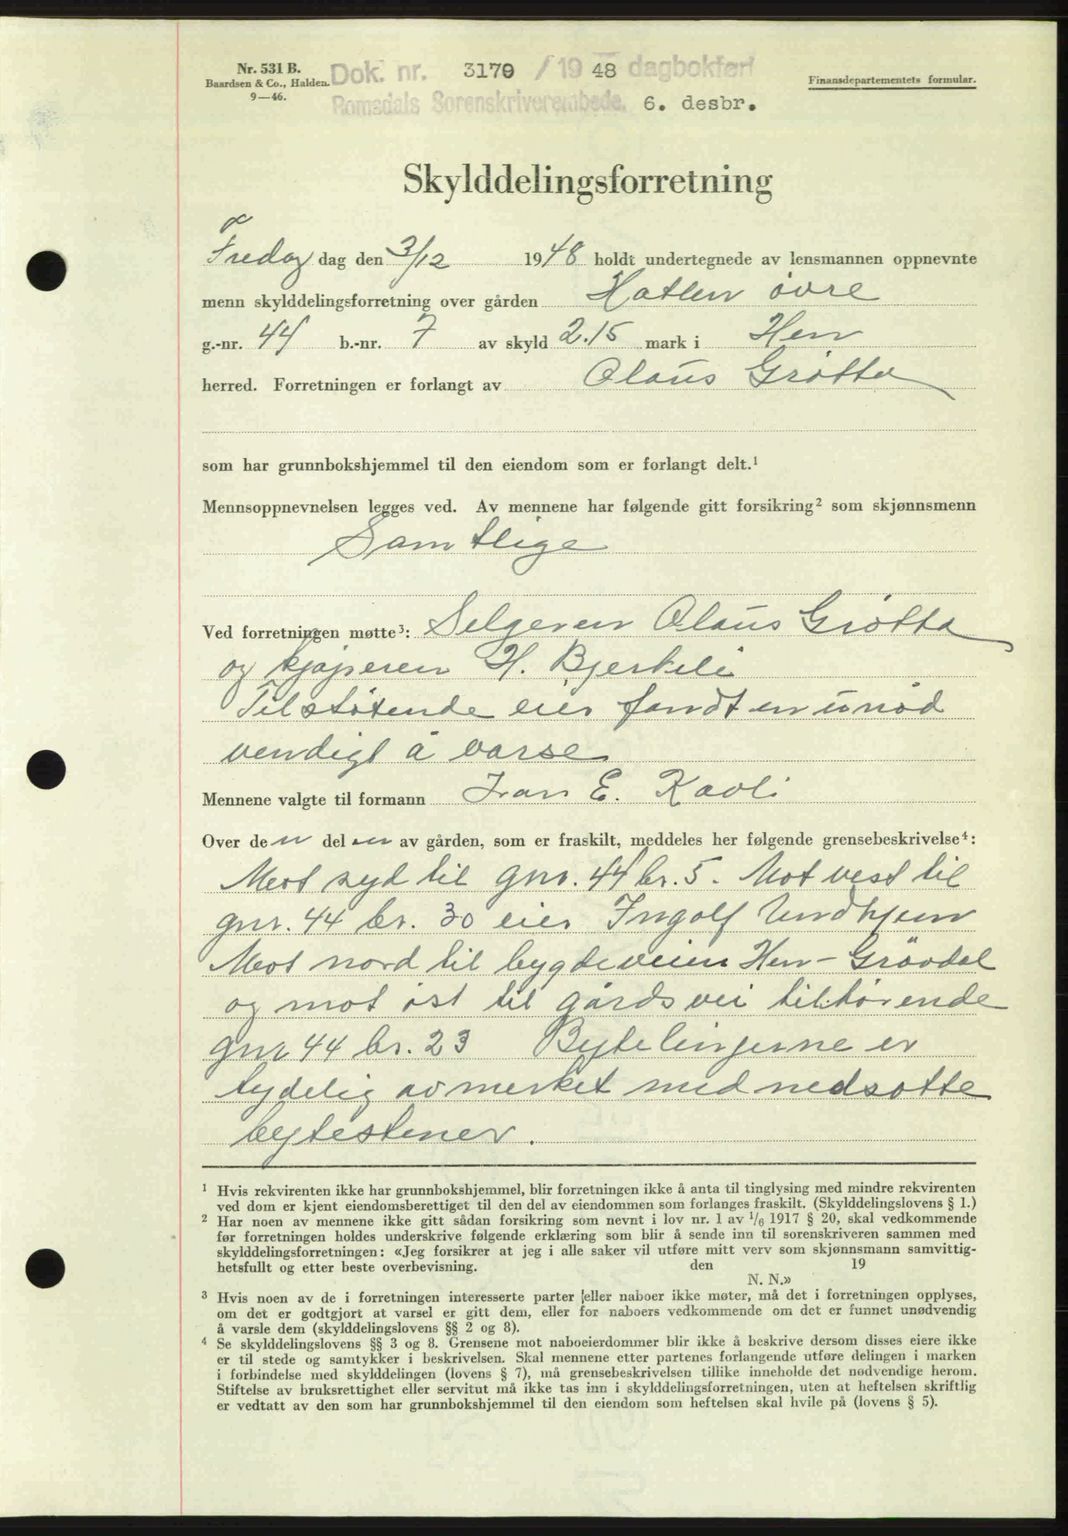 Nr. 531 B.
Baardsen & Co., Halden.
9—46.
Dok. nr. 3179 / 1948 dagbokført
Romsdals Sorenskriverembede. 6. desbr.
Finansdepartementets formular.
Skylddelingsforretning
Fredag dag den 3/12 1948 holdt undertegnede av lensmannen oppnevnte
menn skylddelingsforretning over gården Hatlen övre
g.-nr. 44 b.-nr. 7 av skyld 2.15 mark i Hen
herred. Forretningen er forlangt av Olaus Grötta
som har grunnbokshjemmel til den eiendom som er forlangt delt.¹
Mennsoppnevnelsen legges ved. Av mennene har følgende gitt forsikring² som skjønnsmenn
Samtlige
Ved forretningen møtte³: Selgeren Olaus Grötta
og kjøperen H. Bjerkeli
Tilstøtende eier fandt en unød
vendigt å varse
Mennene valgte til formann Ivar E. Kavli
Over den delen av gården, som er fraskilt, meddeles her følgende grensebeskrivelse⁴:
Mot syd til gnr. 44 br. 5. Mot vest til
gnr. 44 br. 30 eier Ingolf Undhjem
Mot nord til bygdeveien Hen - Grövdal
og mot öst til gårdsvei tilhörende
gnr 44 br. 23 Bytelinjerne er
tydelig avmerket med nedsatte
bytestener.
¹ Hvis rekvirenten ikke har grunnbokshjemmel, blir forretningen ikke å anta til tinglysing med mindre rekvirenten
ved dom er kjent eiendomsberettiget til den del av eiendommen som forlanges fraskilt. (Skylddelingslovens § 1.)
² Har noen av mennene ikke gitt sådan forsikring som nevnt i lov nr. 1 av 1/6 1917 § 20, skal vedkommende
før forretningen holdes underskrive følgende erklæring som blir å sende inn til sorenskriveren sammen med
skylddelingsforretningen: «Jeg forsikrer at jeg i alle saker vil utføre mitt verv som skjønnsmann samvittig-
hetsfullt og etter beste overbevisning. den 19
N. N.»
³ Hvis noen av de i forretningen interesserte parter eller naboer ikke møter, må det i forretningen opplyses,
om det er godtgjort at varsel er gitt dem, eller for naboers vedkommende om det er funnet unødvendig
å varsle dem (skylddelingslovens §§ 2 og 8).
⁴ Se skylddelingslovens §§ 3 og 8. Grensene mot naboeierdommer blir ikke å beskrive dersom disses eiere ikke
er til stede og samtykker i beskrivelsen. Skal mennene etter partenes forlangende utføre delingen i marken
i forbindelse med skylddelingen (lovens § 7), må grensebeskrivelsen tillike inneholde det nødvendige herom.
Stiftelse av bruksrettighet eller servitut må ikke tas inn i skylddelingsforretningen, uten at heftelsen skriftlig
er vedtatt av den som har grunnbokshjemmel til den eiendom som heftelsen skal hvile på (lovens § 5).